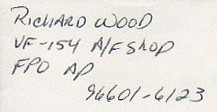 RICHARD WOOD
VF-154 A/F SHOP
FPO AP
96601-6123